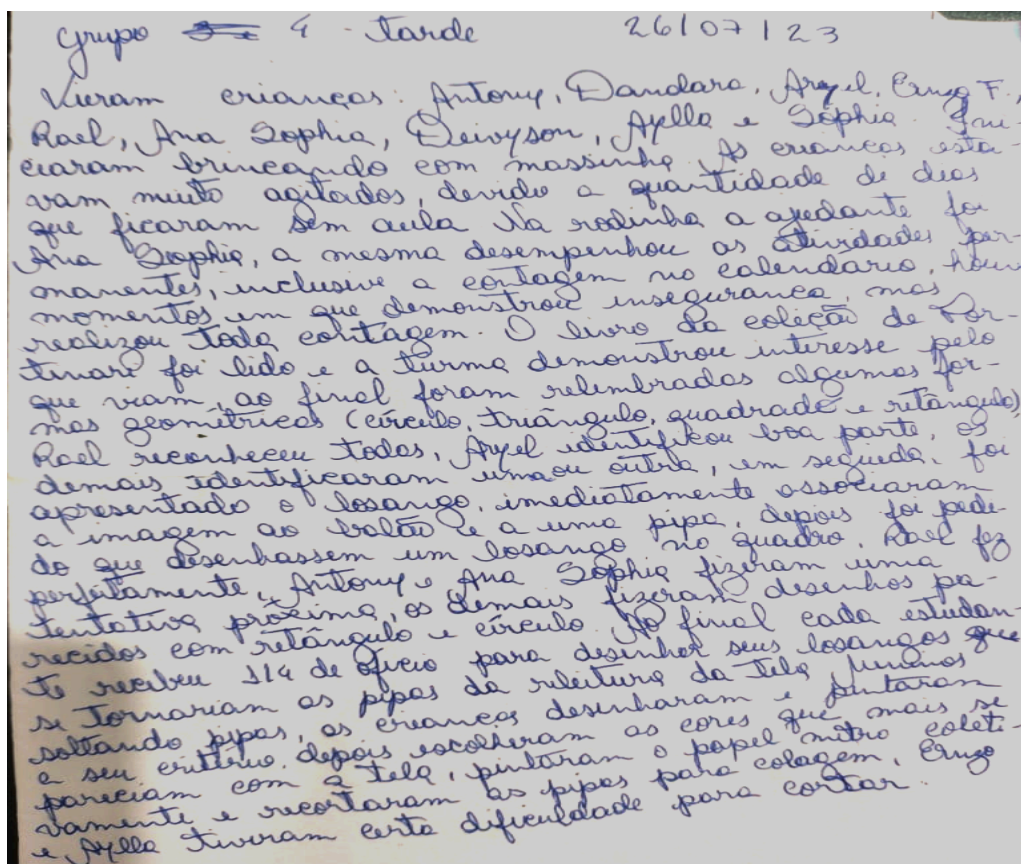 Grupo 4 - tarde 26/07/23
Vieram crianças: Antony, Dandara, Aryel, Enzo F.,
Rael, Ana Sophia, Deivyson, Aylla e Sophia. Ini-
ciaram brincando com massinha. As crianças esta-
vam muito agitados, devido a quantidade de dias
que ficaram sem aula. Na rodinha a ajudante foi
Ana Sophia, a mesma desempenhou as atividades per-
manentes, inclusive a contagem no calendário, houve
momentos em que demonstrou insegurança, mas
realizou toda contagem. O livro da coleção de Por-
tinari foi lido e a turma demonstrou interesse pelo
que viam, ao final foram relembradas algumas for-
mas geométricas (círculo, triângulo, quadrado e retângulo)
Rael reconheceu todas, Aryel identificou boa parte, os
demais identificaram uma ou outra, em seguida, foi
apresentado o losango, imediatamente associaram
a imagem ao balão e a uma pipa, depois foi pedi-
do que desenhassem um losango no quadro, Rael fez
perfeitamente, Antony e Ana Sophia fizeram uma
tentativa próxima, os demais fizeram desenhos pa-
recidos com retângulo e círculo. No final cada estudan-
te recebeu 1/4 de ofício para desenhar seus losangos que
se tornariam as pipas da releitura da tela Meninos
soltando pipas, as crianças desenharam e pintaram
a seu critério, depois escolheram as cores que mais se
pareciam com a tela, pintaram o papel metro coleti-
vamente e recortaram as pipas para colagem, Enzo
e Aylla tiveram certa dificuldade para cortar.